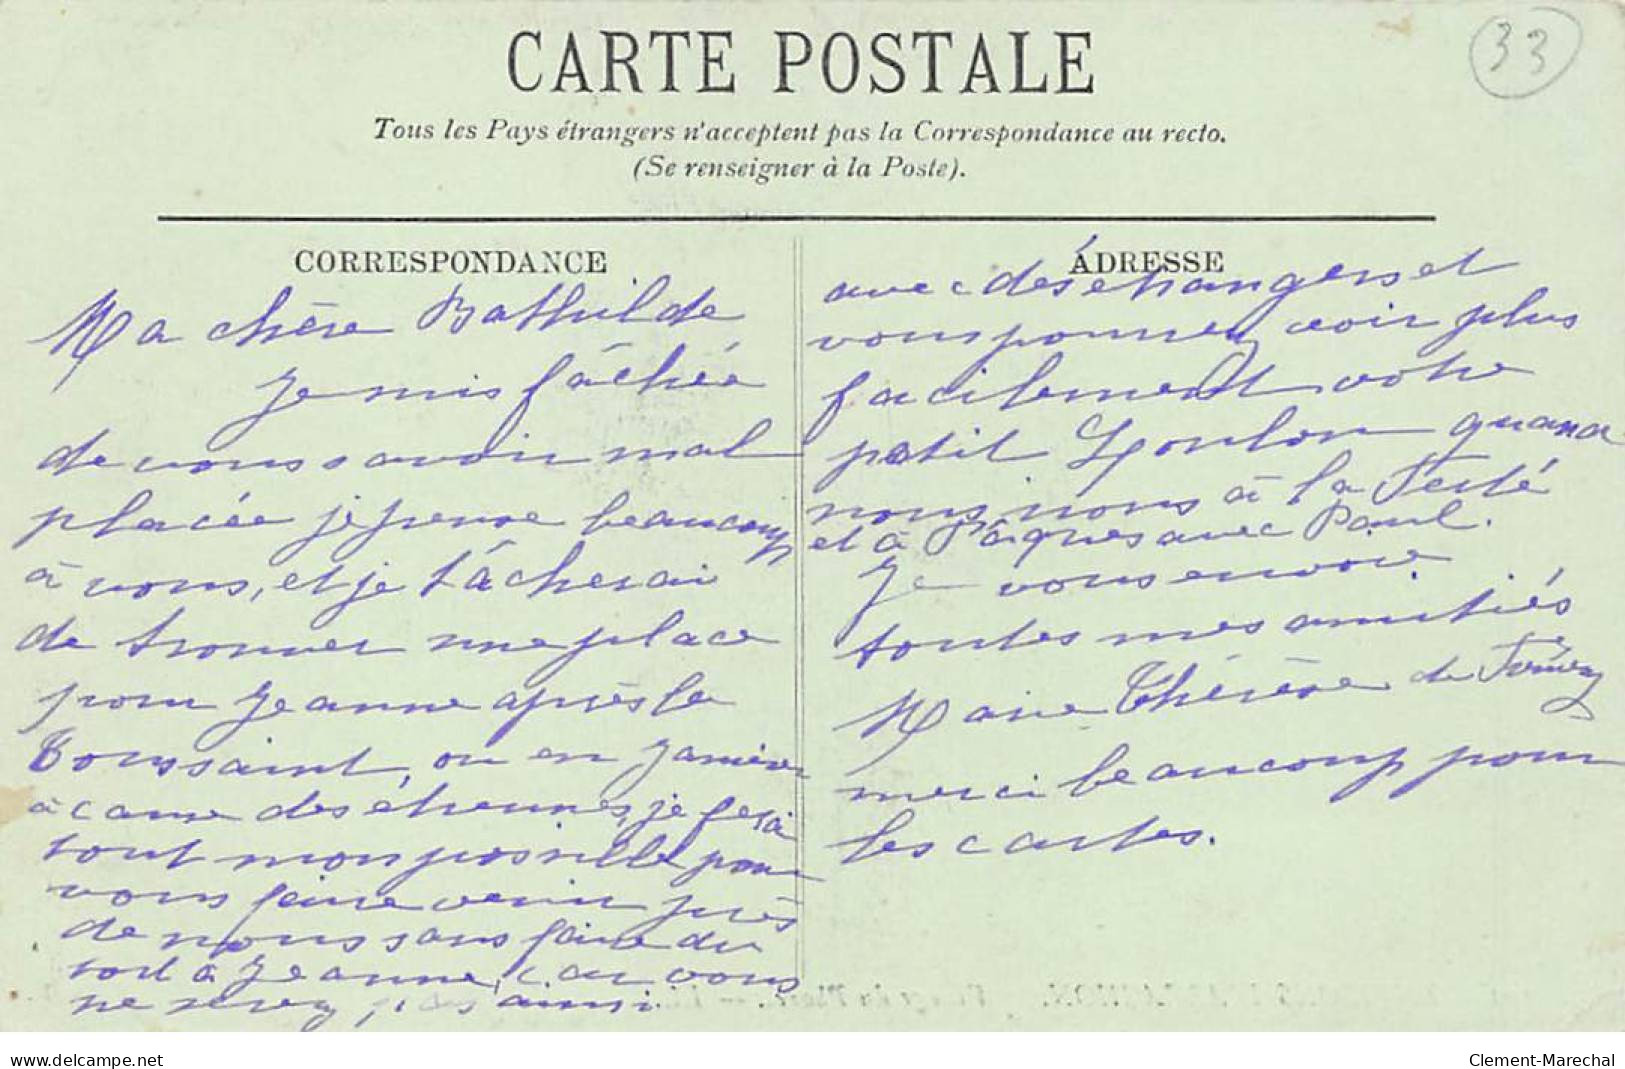 CARTE POSTALE
33
Tous les Pays étrangers n'acceptent pas la Correspondance au recto.
(Se renseigner à la Poste).
CORRESPONDANCE
Ma chère Bathilde
Je suis fâchée
de vous savoir mal
placée je pense beaucoup
à vous, et je tâcherai
de trouver une place
pour Jeanne après la
Toussaint, ou en Janvier
à cause des étrennes, je ferai
tout mon possible pour
vous faire venir près
de nous sans faire du
tort à Jeanne, car vous
ne serez pas ainsi
ADRESSE
avec des étrangers et
vous pourrez voir plus
facilement votre
petit Loulou quand
nous irons à la Teste
et à Pâques avec Paul.
Je vous envoie
toutes mes amitiés
Marie Thérèse de
merci beaucoup pour
les cartes.
www.delcampe.net
Clement-Marechal